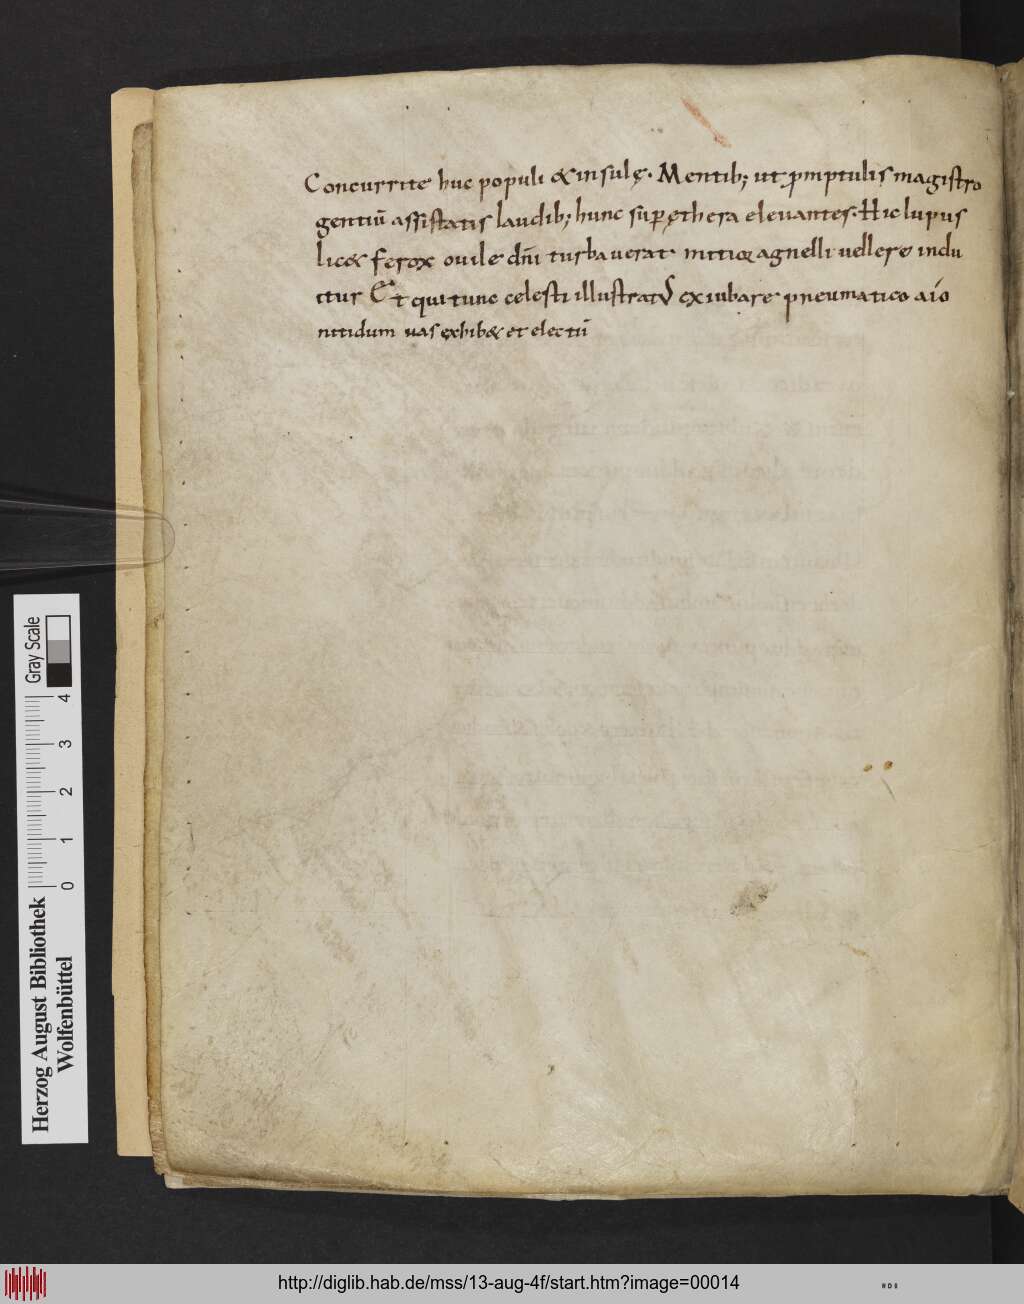 Concurrite huc populi & insulę. Mentib; ut p̄mptulis magistro
gentiū assistatis laudib; hunc sup ęthera elevantes. Hic lupus
lic& ferox ovile dn̄i turbaverat mitioꝛ agnelli vellere indu
itur Et qui tunc celesti illustrat᷒ ex iubare pneumatico
nitidum vas exhib& et electū
Gray Scale
0 1 2 3 4
Herzog August Bibliothek
Wolfenbüttel
http://diglib.hab.de/mss/13-aug-4f/start.htm?image=00014